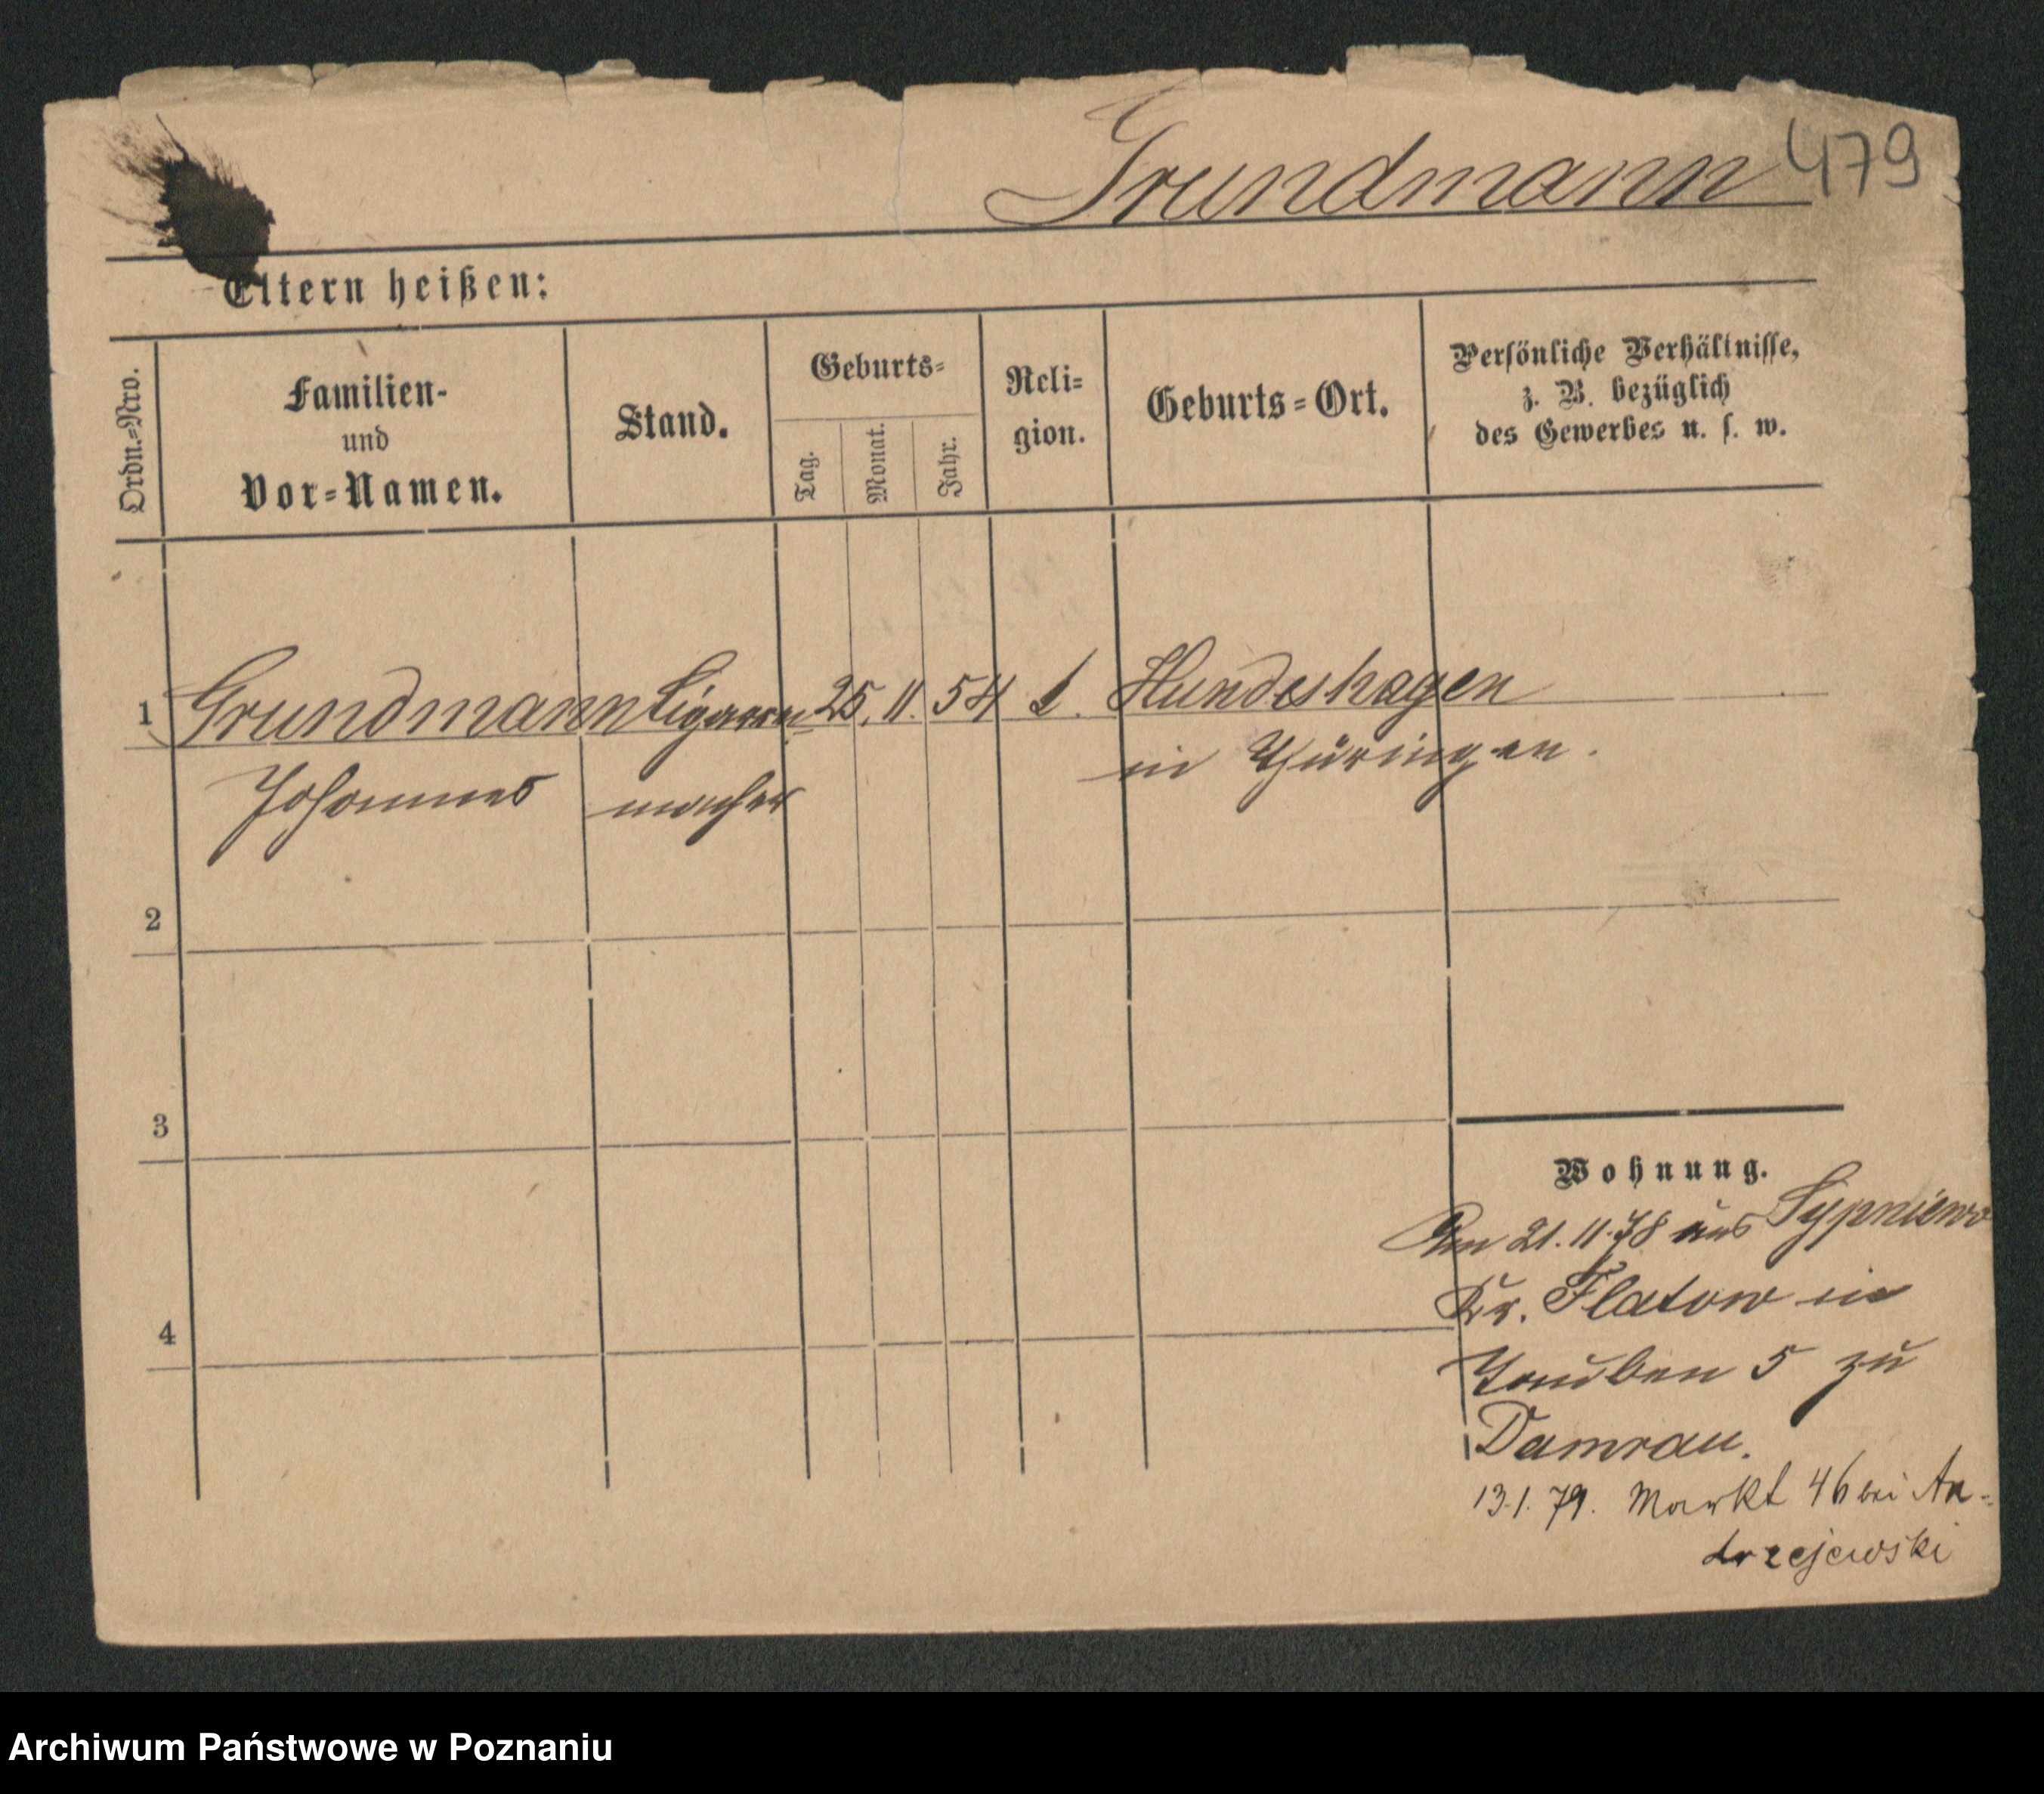 Grundmann 479
Eltern heißen:
Ordn.=Nro.
Familien-
und
Vor=Namen.
Stand.
Geburts=
Tag.
Monat.
Jahr.
Reli=
gion.
Geburts=Ort.
Persönliche Verhältnisse,
z. B. bezüglich
des Gewerbes u. s. w.
1 Grundmann Cigarren 25. 11. 54 Hundeshagen
Johannes macher in Thüringen.
2
3
4
Wohnung.
Am 21.11.78 aus Sypniewo
Kr. Flatow in
Tauben 5 zu
Damrau.
13.1.79. Markt 46 bei An-
drzejewski
Archiwum Państwowe w Poznaniu